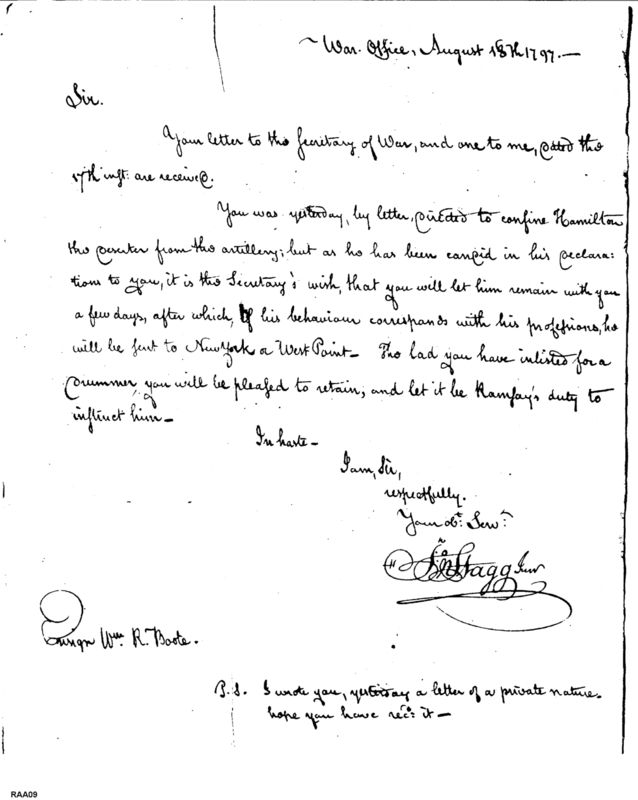 ~ War. Office, August 18th 1797.—
Sir.
Your letter to the Secretary of War, and one to me, dated the
17th inst: are received.
You was yesterday, by letter, directed to confine Hamilton
the deserter from the artillery; but as he has been candid in his declara:
tions to you, it is the Secretary's wish, that you will let him remain with you
a few days, after which, if his behaviour corresponds with his professions, he
will be sent to New York or West Point— The lad you have inlisted for a
drummer, you will be pleased to retain, and let it be Ramsay's duty to
instruct him—
In haste—
I am, Sir,
respectfully.
Your obt: Servt:
Jno Stagg Junr
Ensign Wm R. Boote.
P.S. I wrote you, yesterday a letter of a private nature.
hope you have recd: it—
RAA09